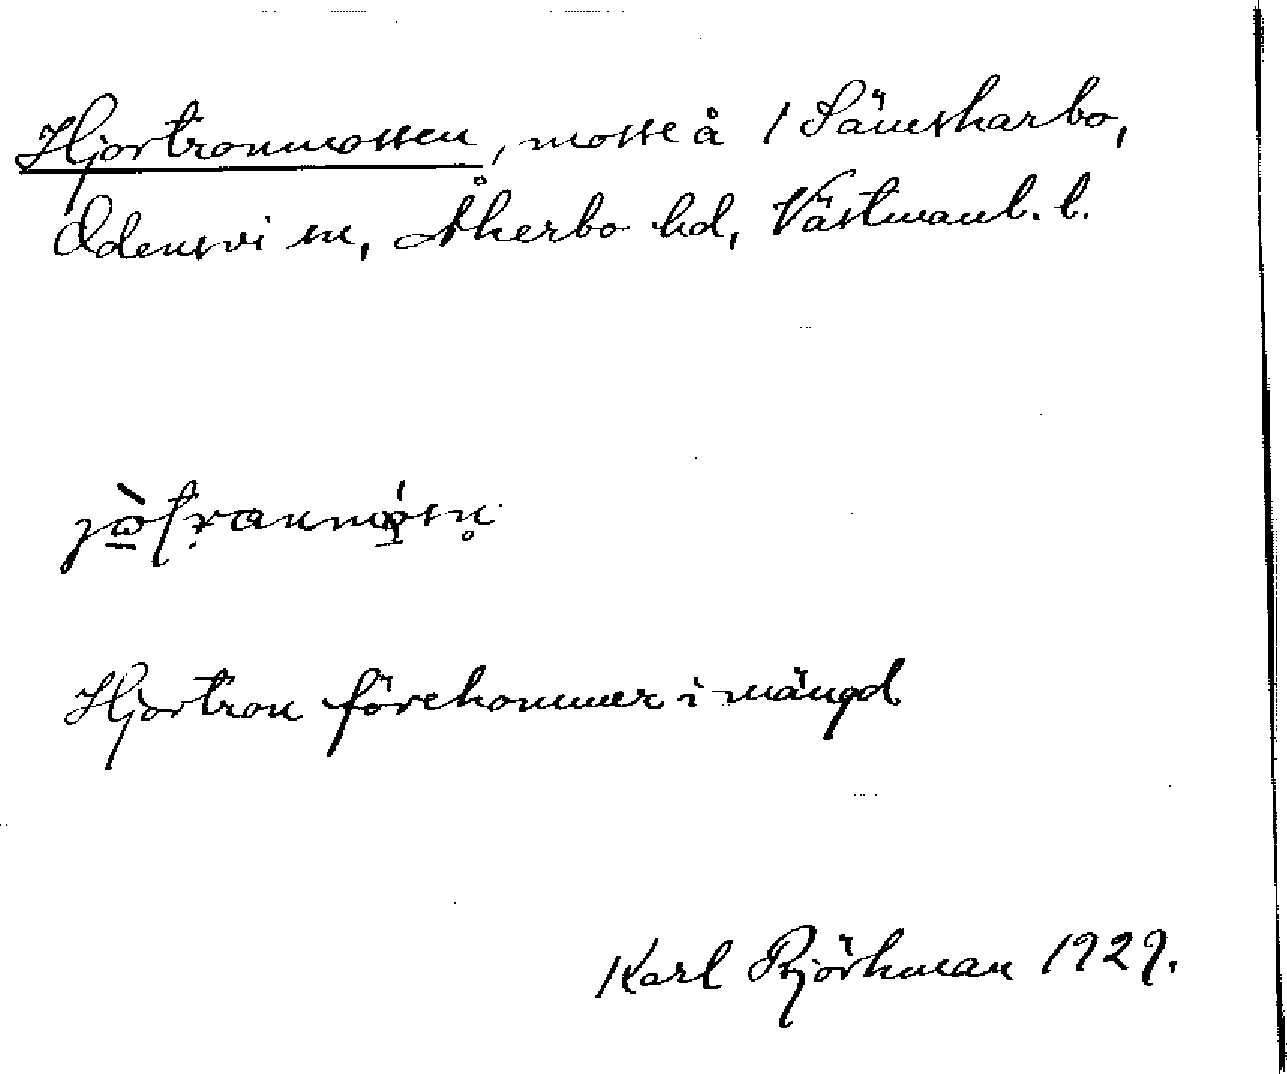 Hjortronmossen, mosse å 1 Sämskarbo,
Odensvi sn, Åkerbo hd, Västmanl. l.
Hjortron förekommer i mängd
Karl Björkman 1929.